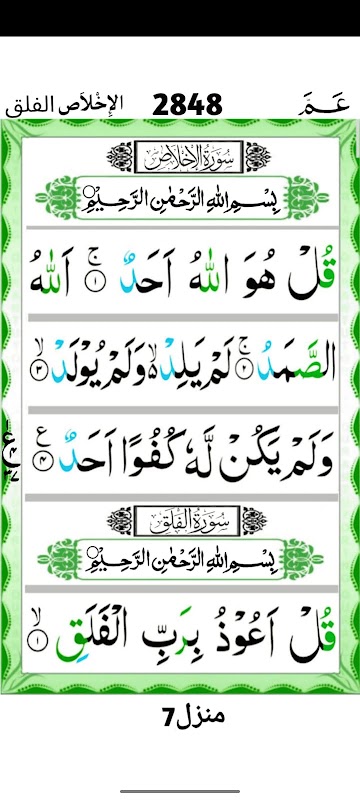 الإخلاص الفلق 2848 عَمَّ
سُورَةُ الْإِخْلَاصِ
بِسْمِ اللهِ الرَّحْمٰنِ الرَّحِيْمِ
قُلْ هُوَ اللهُ اَحَدٌ ۚ ۝۱ اَللهُ
الصَّمَدُ ۚ ۝۲ لَمْ يَلِدْ ۙ وَلَمْ يُوْلَدْ ۙ ۝۳
وَلَمْ يَكُنْ لَّهٗ كُفُوًا اَحَدٌ ۝۴ ع
سُورَةُ الْفَلَقِ
بِسْمِ اللهِ الرَّحْمٰنِ الرَّحِيْمِ
قُلْ اَعُوْذُ بِرَبِّ الْفَلَقِ ۙ ۝۱
منزل7